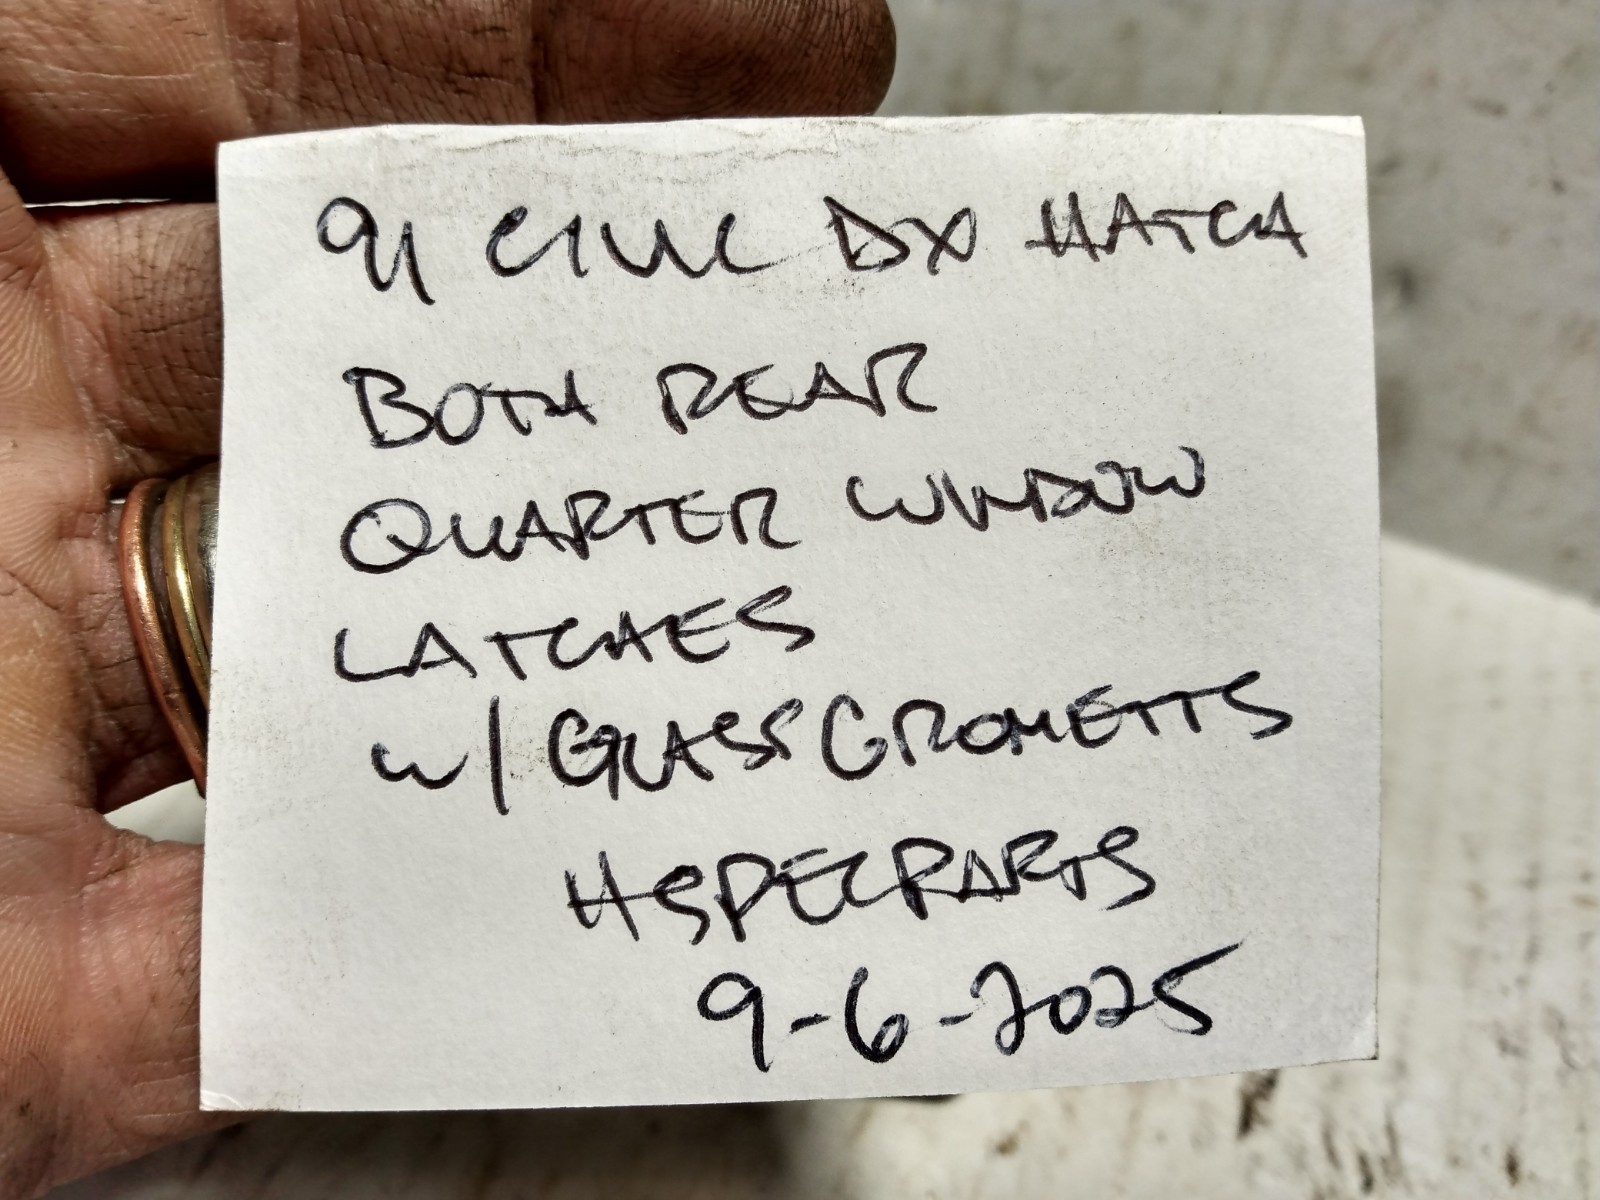 91 CIVIC DX HATCH
BOTH REAR
QUARTER WINDOW
LATCHES
W/ GLASS GROMETTS
HSPECPARTS
9-6-2025